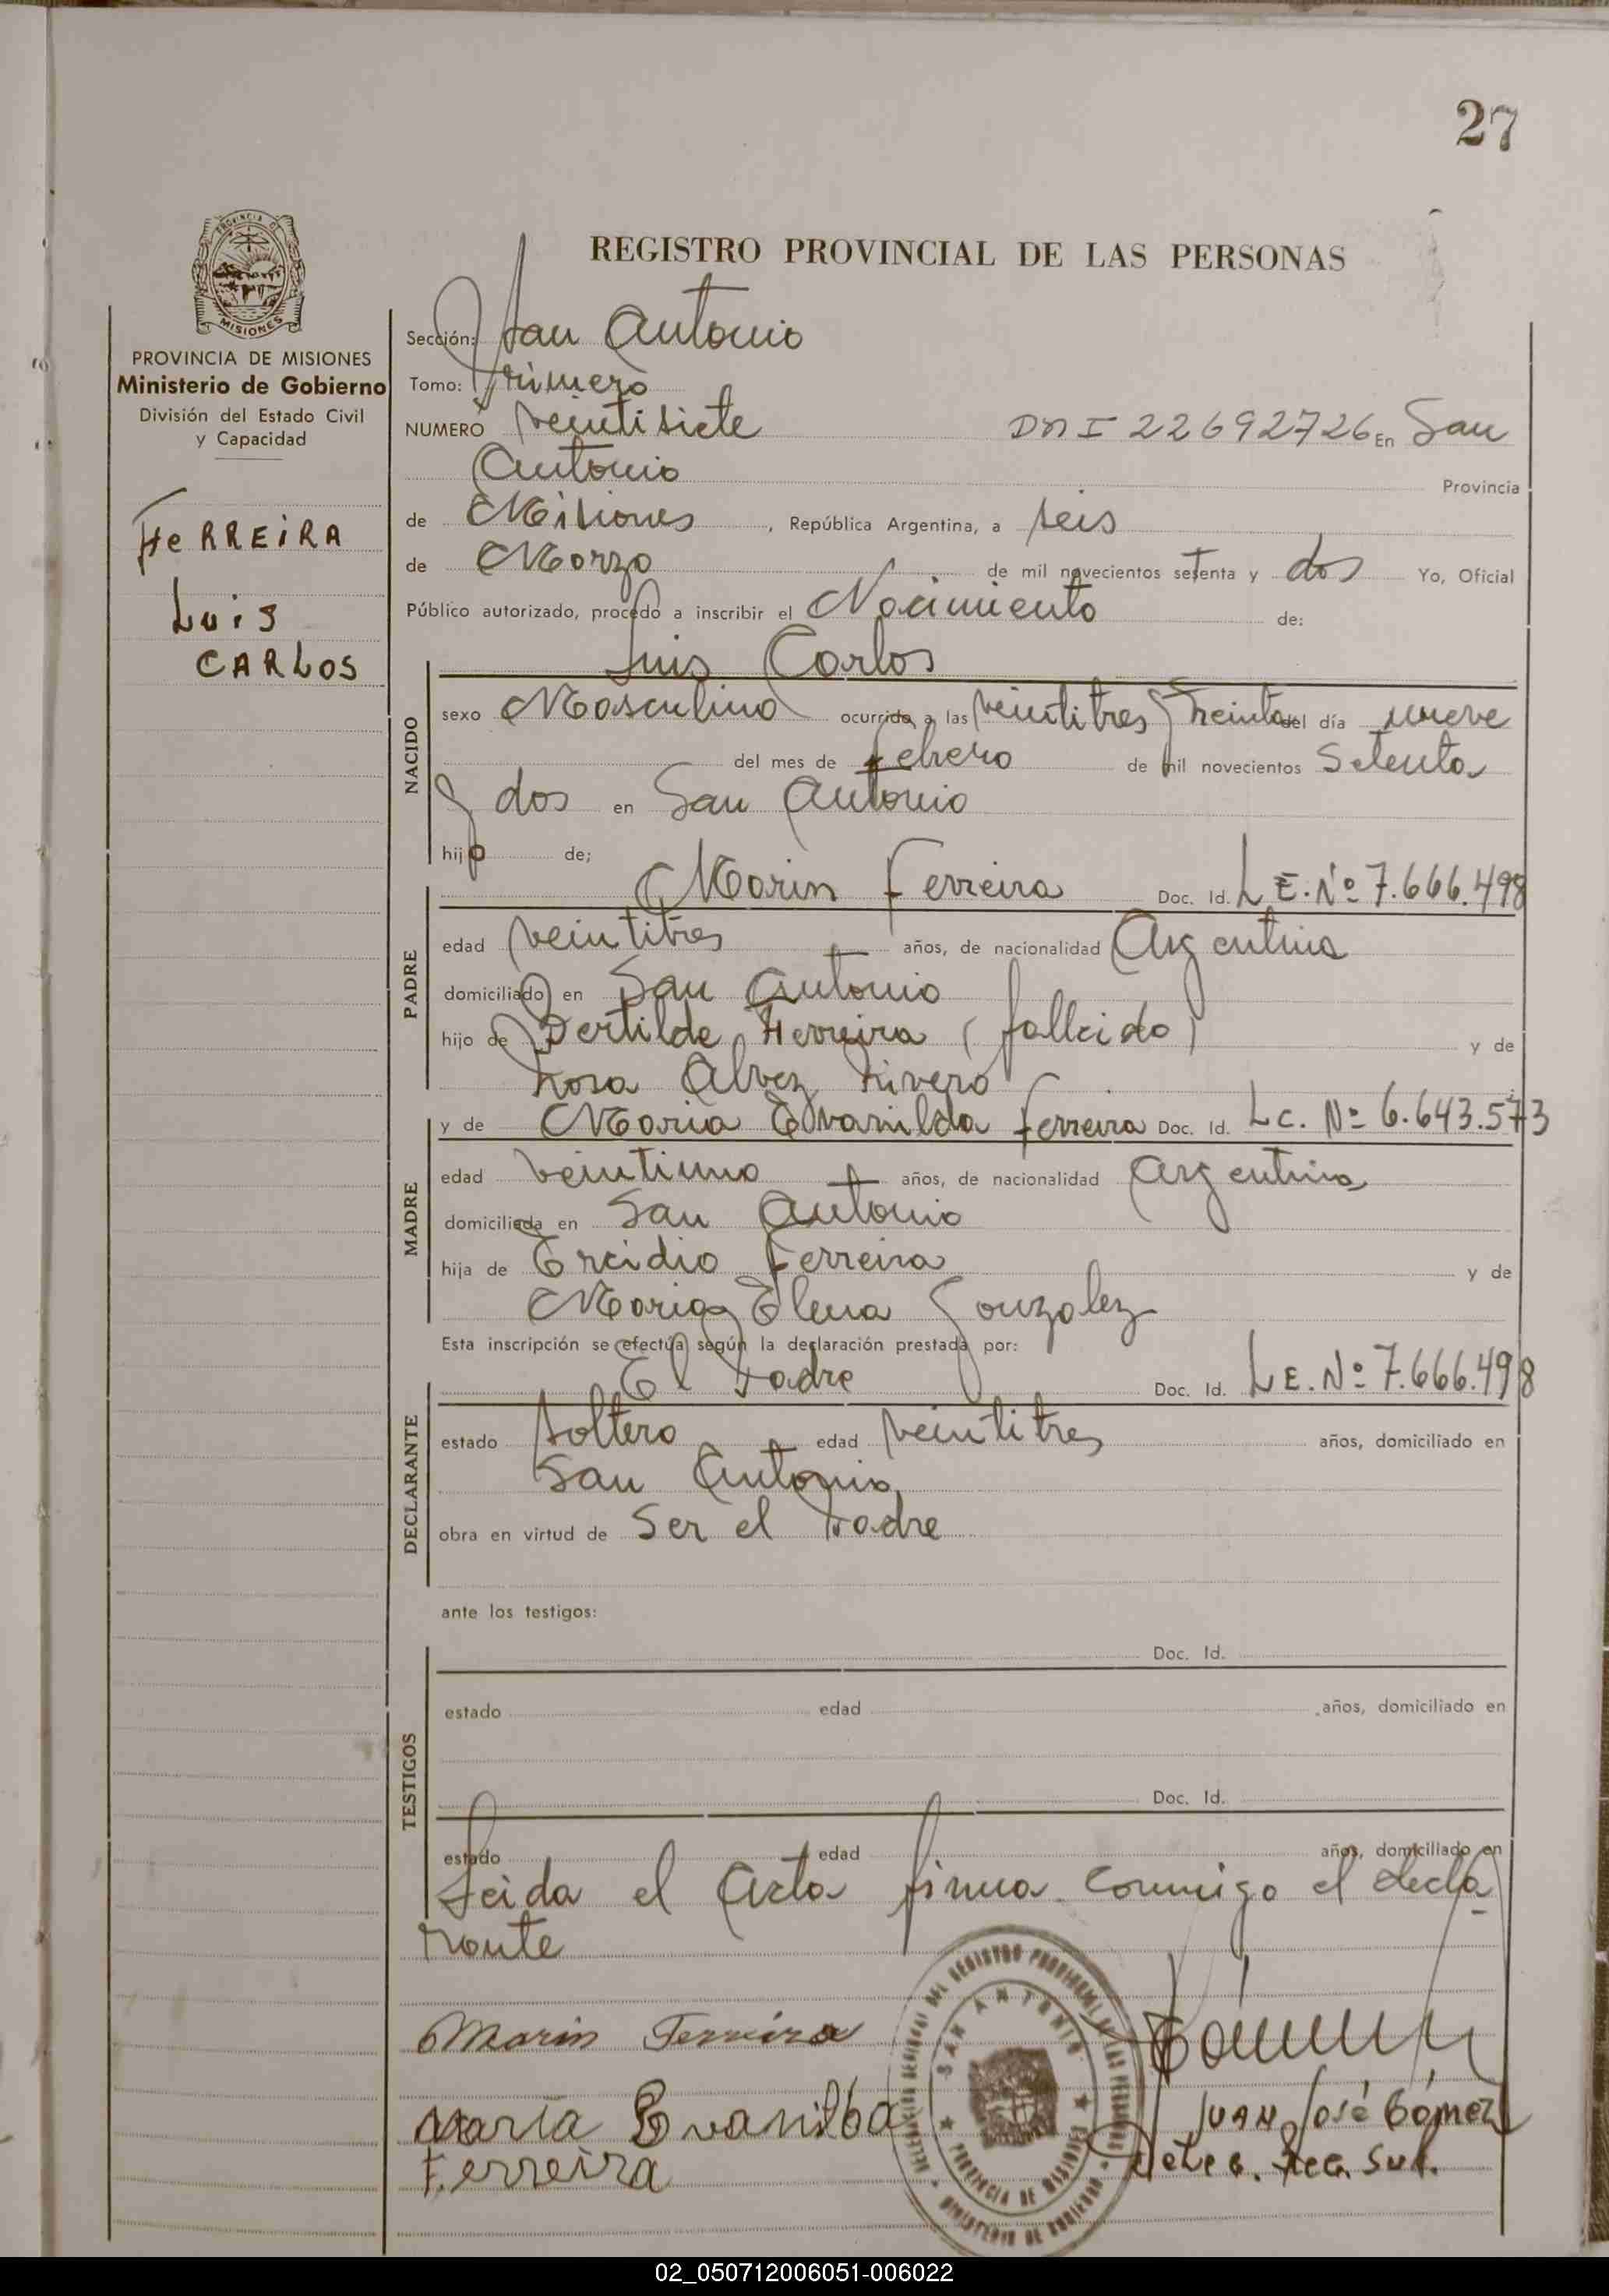 27
REGISTRO PROVINCIAL DE LAS PERSONAS
PROVINCIA DE MISIONES
Ministerio de Gobierno
División del Estado Civil
y Capacidad
FeRREiRA
Luis
CARLOS
Sección: San Antonio
Tomo: Primero
NUMERO veintisiete DNI 22692726 En San
Antonio Provincia
de Misiones, República Argentina, a seis
de Marzo de mil novecientos setenta y dos Yo, Oficial
Público autorizado, procedo a inscribir el Nacimiento de:
Luis Carlos
NACIDO
sexo Masculino ocurrido a las veintitres y treinta del día nueve
del mes de febrero de mil novecientos Setenta
y dos en San Antonio
hijo de;
Marin Ferreira Doc. Id. L E. Nº 7.666.498
PADRE
edad veintitres años, de nacionalidad Argentina
domiciliado en San Antonio
hijo de Bertilde Ferreira (fallcido) y de
Rosa Alvez Rivero
y de Maria Evanilda Ferreira Doc. Id. L c. Nº 6.643.573
MADRE
edad veintiuno años, de nacionalidad Argentina
domiciliada en San Antonio
hija de Ercidio Ferreira y de
Maria Elena Gonzalez
Esta inscripción se efectúa según la declaración prestada por:
El Padre Doc. Id. L E. Nº 7.666.498
DECLARANTE
estado soltero edad veintitres años, domiciliado en
San Antonio
obra en virtud de Ser el Padre
ante los testigos:
Doc. Id.
TESTIGOS
estado edad años, domiciliado en
Doc. Id.
estado edad años, domiciliado en
Leida el Acta firma conmigo el decla
rante
Marin Ferreira
maria Evanilda
Ferreira
SAN ANTONIO
PROVINCIA DE MISIONES
MINISTERIO DE GOBIERNO
JUAN José Gómez
02_050712006051-006022